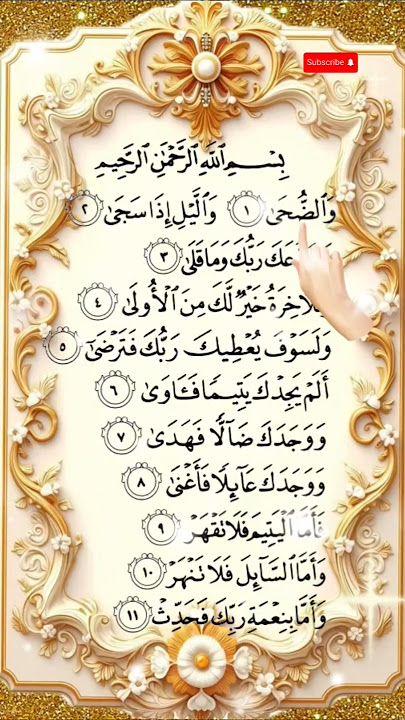 Subscribe
بِسْمِ اللَّهِ الرَّحْمَٰنِ الرَّحِيمِ
وَالضُّحَىٰ ١ وَالَّيْلِ إِذَا سَجَىٰ ٢
رَبُّكَ وَمَا قَلَىٰ ٣
خَيْرٌ لَّكَ مِنَ الْأُولَىٰ ٤
وَلَسَوْفَ يُعْطِيكَ رَبُّكَ فَتَرْضَىٰ ٥
أَلَمْ يَجِدْكَ يَتِيمًا فَـَٔاوَىٰ ٦
وَوَجَدَكَ ضَآلًّا فَهَدَىٰ ٧
وَوَجَدَكَ عَآئِلًا فَأَغْنَىٰ ٨
فَأَمَّا الْيَتِيمَ فَلَا تَقْهَرْ ٩
وَأَمَّا السَّآئِلَ فَلَا تَنْهَرْ ١٠
وَأَمَّا بِنِعْمَةِ رَبِّكَ فَحَدِّثْ ١١